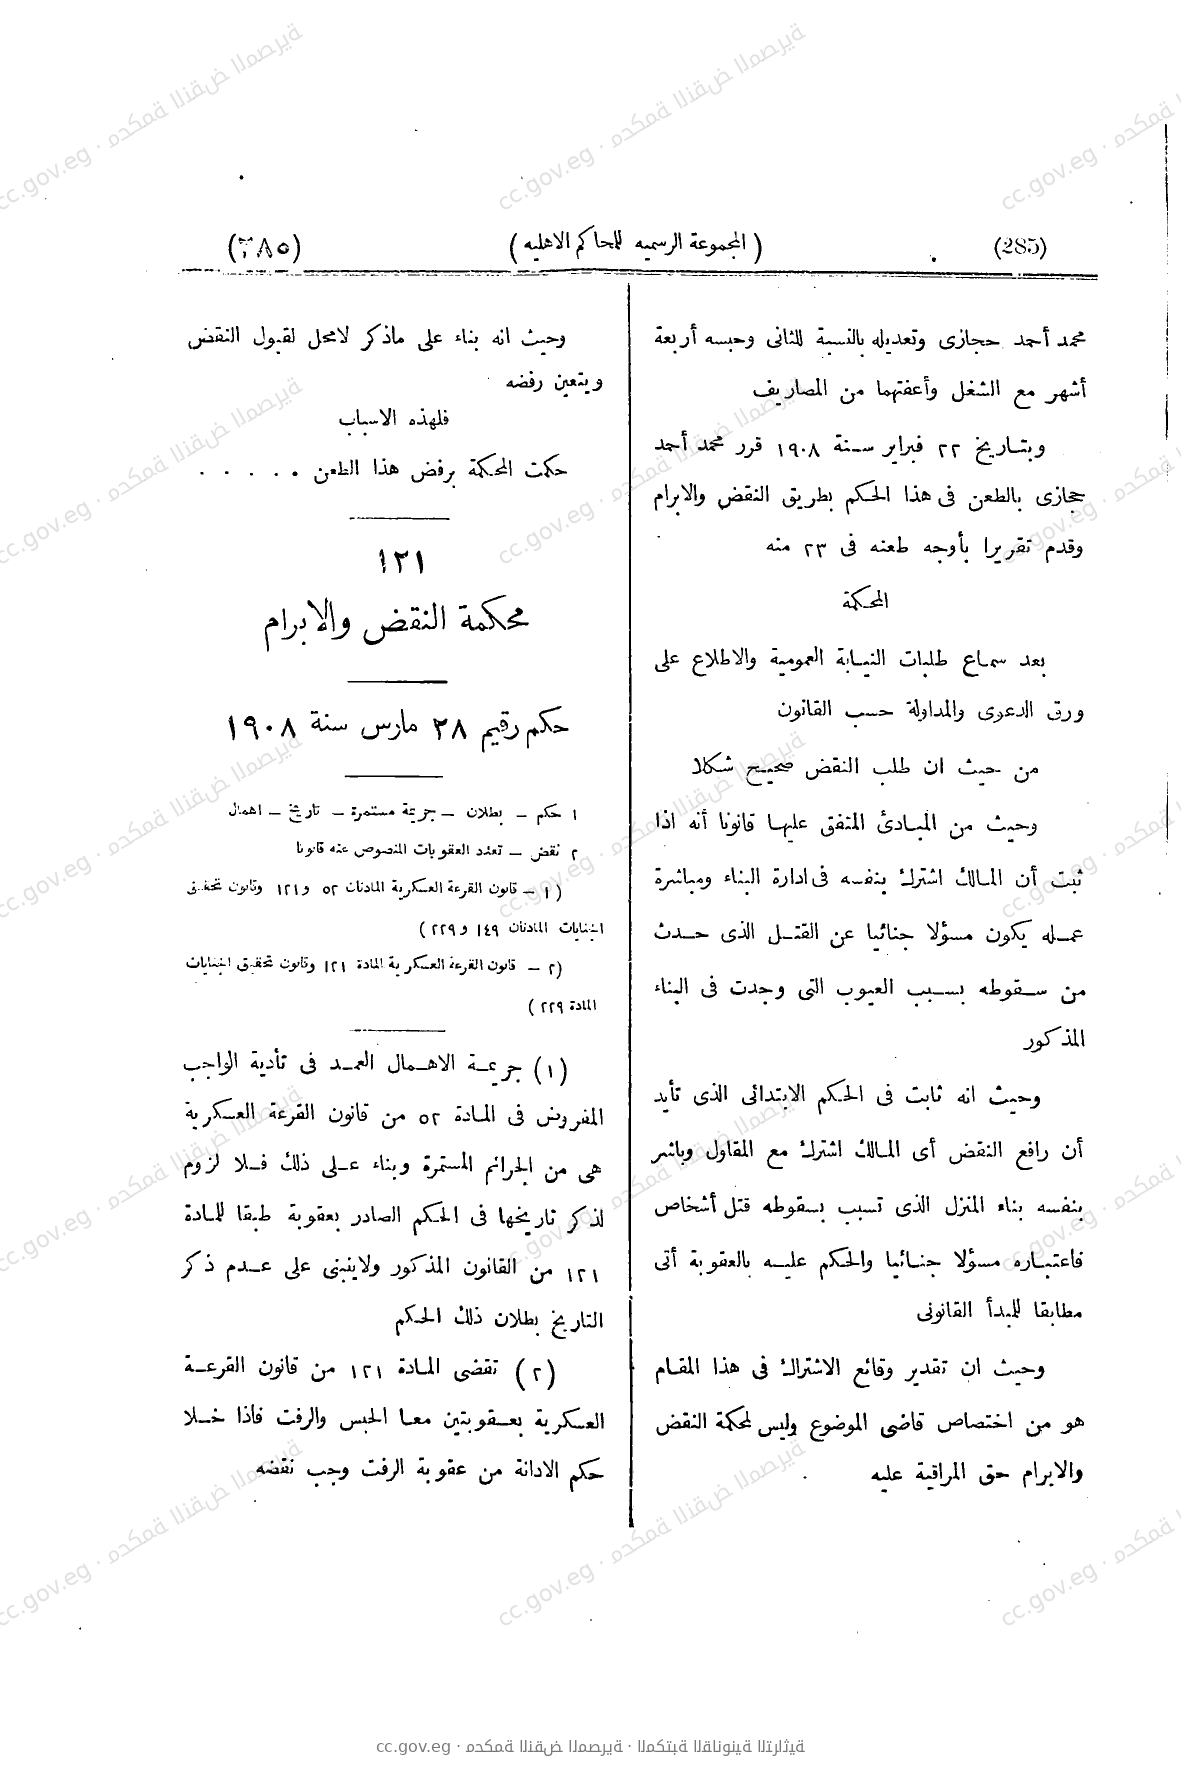 (285) ( المجموعة الرسميه للمحاكم الاهليه ) (٢٨٥)
محمد أحمد حجازى وتعديله بالنسبة للثانى وحبسه أربعة
أشهر مع الشغل وأعفتهما من المصاريف
وبتاريخ ٢٢ فبراير سنة ١٩٠٨ قرر محمد أحمد
حجازى بالطعن فى هذا الحكم بطريق النقض والابرام
وقدم تقريرا بأوجه طعنه فى ٢٣ منه
المحكمة
بعد سماع طلبات النيابة العمومية والاطلاع على
ورق الدعوى والمداولة حسب القانون
من حيث ان طلب النقض صحيح شكلا
وحيث من المبادئ المتفق عليها قانونا أنه اذا
ثبت أن المالك اشترك بنفسه فى ادارة البناء ومباشرة
عمله يكون مسؤلا جنائيا عن القتل الذى حدث
من سقوطه بسبب العيوب التى وجدت فى البناء
المذكور
وحيث انه ثابت فى الحكم الابتدائى الذى تأيد
أن رافع النقض أى المالك اشترك مع المقاول وباشر
بنفسه بناء المنزل الذى تسبب بسقوطه قتل أشخاص
فاعتباره مسؤلا جنائيا والحكم عليه بالعقوبة أتى
مطابقا للمبدأ القانونى
وحيث ان تقدير وقائع الاشتراك فى هذا المقام
هو من اختصاص قاضى الموضوع وليس لمحكمة النقض
والابرام حق المراقبة عليه
وحيث انه بناء على ماذكر لامحل لقبول النقض
ويتعين رفضه
فلهذه الاسباب
حكمت المحكمة برفض هذا الطعن . . . . .
١٢١
محكمة النقض والابرام
حكم رقيم ٢٨ مارس سنة ١٩٠٨
١ حكم – بطلان – جريمة مستمرة – تاريخ – اهمال
٢ نقض – تعدد العقوبات المنصوص عنه قانونا
(١ – قانون القرعة العسكرية المادتان ٥٢ و١٢١ وقانون تحقيق
الجنايات المادتان ١٤٩ و٢٢٩)
(٢ – قانون القرعة العسكرية المادة ١٢١ وقانون تحقيق الجنايات
المادة ٢٢٩)
(١) جريمة الاهمال العمد فى تأدية الواجب
المفروض فى المادة ٥٢ من قانون القرعة العسكرية
هى من الجرائم المستمرة وبناء على ذلك فلا لزوم
لذكر تاريخها فى الحكم الصادر بعقوبة طبقا للمادة
١٢١ من القانون المذكور ولاينبنى على عدم ذكر
التاريخ بطلان ذلك الحكم
(٢) تقضى المادة ١٢١ من قانون القرعة
العسكرية بعقوبتين معا الحبس والرفت فاذا خلا
حكم الادانة من عقوبة الرفت وجب نقضه
cc.gov.eg · محكمة النقض المصرية · المكتبة القانونية التراثية